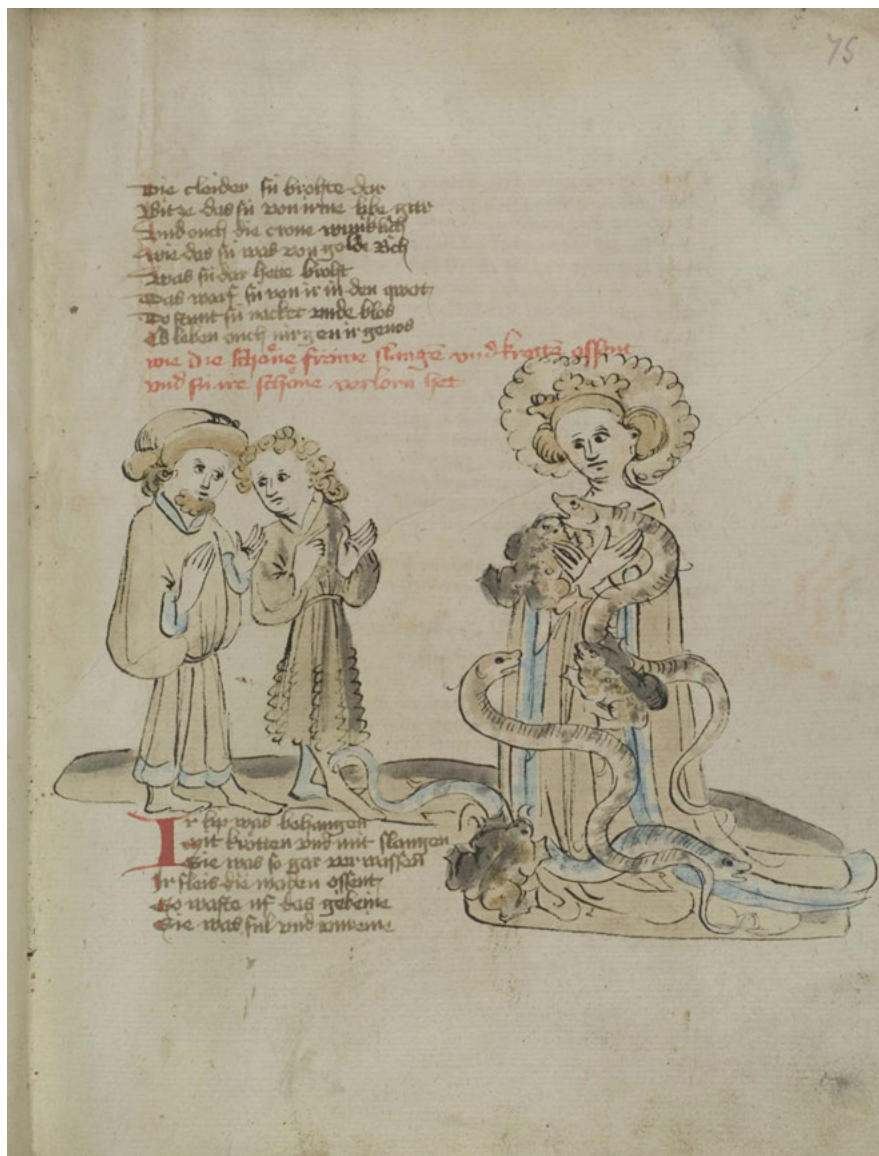 75
Die cleider sü brohte dar
Witze das sü von irme libe gar
Und ouch die crone wuniklich
Wie das sü was von golde rich
Was sü dar hette broht
Das warf sü von ir in den
Do stunt sü nacket unde blos
leben ouch nirgen ir genos
wie die schoͤne frouwe slangē und krottē ossent
und sü ire schoͤne verlorn het
Ir lip was behangen
mit krötten vnd mit slangen
Sie was so gar verwassen
Ir fleis die maden ossent
So waste uf das gebeine
Sie was ful vnd unreine